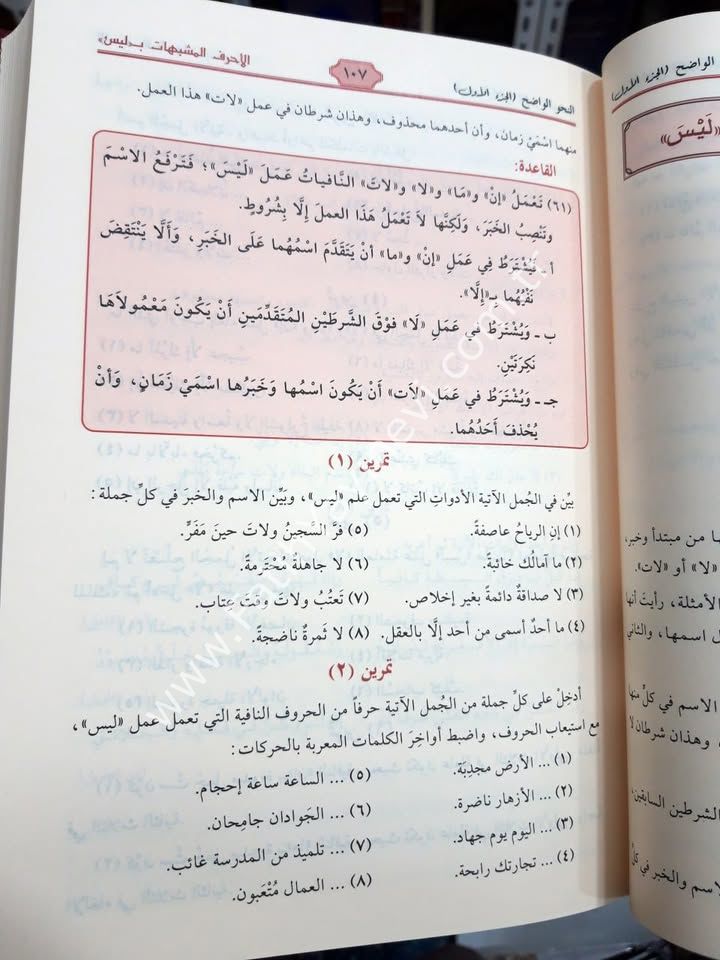 الأحرف المشبهات بـ«ليس»
١٠٧
النحو الواضح (الجزء الأول)
منهما اسْمَيْ زمان، وأن أحدهما محذوف، وهذان شرطان في عمل «لات» هذا العمل.
القاعدة:
(٦١) تَعْمَلُ «إنْ» و«مَا» و«لا» و«لاتَ» النَّافياتُ عَمَلَ «لَيْسَ»؛ فَتَرْفَعُ الاسْمَ
وتَنْصِبُ الخَبَرَ، وَلَكِنَّها لاَ تَعْمَلُ هَذَا العملَ إلَّا بِشُروطٍ.
أ ـ فَيُشْتَرَطُ فِي عَمَلِ «إنْ» و«ما» أنْ يَتَقَدَّمَ اسْمُهُما عَلَى الخَبَرِ، وَأَلَّا يَنْتَقِضَ
نَفْيُهُما بِـ«إلَّا».
ب ـ وَيُشْتَرَطُ في عَمَلِ «لَا» فوْقَ الشَّرطَيْنِ المُتَقَدِّمَينِ أَنْ يَكُونَ مَعْمُولاَهَا
نَكِرَتَيْنِ.
جـ ـ وَيُشْتَرَطُ في عَمَلِ «لاَت» أَنْ يَكُونَ اسْمُها وَخَبَرُها اسْمَيْ زَمَانٍ، وَأنْ
يُحْذفَ أَحَدُهُما.
تمرين (١)
بيِّن في الجُمل الآتية الأدواتِ التي تعمل علم «ليس»، وبَيِّن الاسم والخبرَ في كلِّ جملة:
(١) إن الرياحُ عاصفةً.
(٥) فرَّ السَّجينُ ولاتَ حينَ مَفَرٍّ.
(٢) ما آمالُك خائبةً.
(٦) لا جاهلةٌ مُحْترمةً.
(٣) لا صداقةٌ دائمةً بغير إخلاص.
(٧) تَعتُبُ ولاتَ وقتَ عِتاب.
(٤) ما أحدٌ أسمى من أحد إلَّا بالعقل.
(٨) لا ثَمرةٌ ناضجةً.
تمرين (٢)
أدخِلْ على كلِّ جملة من الجُمل الآتية حرفاً من الحروف النافية التي تعمل عمل «ليس»،
مع استيعاب الحروف، واضبط أواخِرَ الكلمات المعربة بالحركات:
(١) ... الأرض مجدِبَة.
(٥) ... الساعة ساعة إحجام.
(٢) ... الأزهار ناضرة.
(٦) ... الجَوادان جامِحان.
(٣) ... اليوم يوم جهاد.
(٧) ... تلميذ من المدرسة غائب.
(٤) ... تجارتك رابحة.
(٨) ... العمال مُتْعَبون.
الواضح (الجزء الأول)
«لَيْسَ»
ها من مبتدأ وخبر،
«لا» أو «لات».
الأمثلة، رأيتَ أنها
اسمها، والثاني
الاسم في كلٍّ منها
، وهذان شرطان لا
الشرطين السابقين،
لاسم والخبر في كلِّ